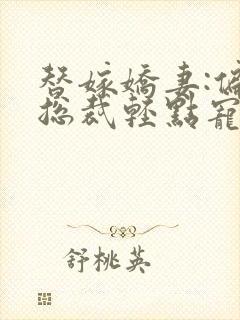 替嫁嬌妻:偏
總裁輕點寵
舒桃英